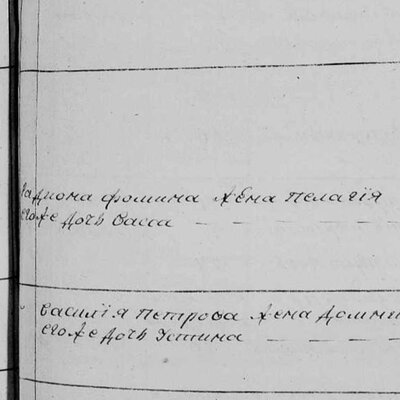 Радиона Фомина жена пелагія
егоже дочь Васса
Василія петрова жена
егоже дочь Устина